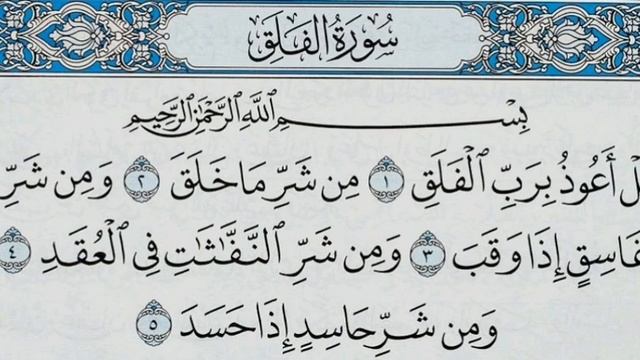 سُورَةُ الفَلَقِ
بِسْمِ اللَّهِ الرَّحْمَٰنِ الرَّحِيمِ
لْ أَعُوذُ بِرَبِّ ٱلْفَلَقِ ١ مِن شَرِّ مَا خَلَقَ ٢ وَمِن شَرِّ
غَاسِقٍ إِذَا وَقَبَ ٣ وَمِن شَرِّ ٱلنَّفَّٰثَٰتِ فِى ٱلْعُقَدِ ٤
وَمِن شَرِّ حَاسِدٍ إِذَا حَسَدَ ٥